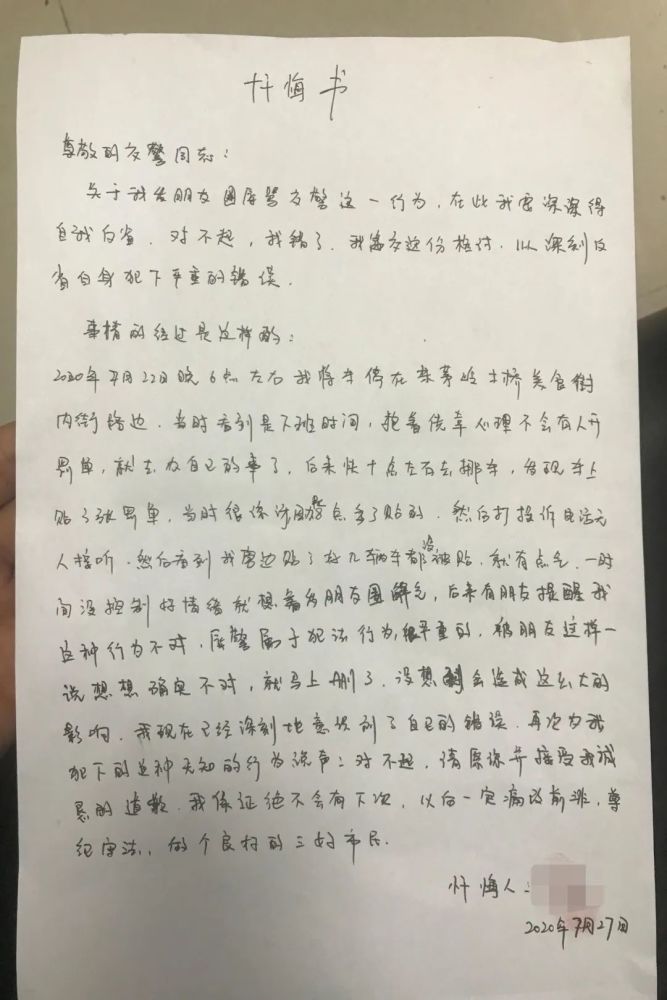 忏悔书
尊敬的交警同志：
关于我发朋友圈辱骂交警这一行为，在此我要深深得
自我自省．对不起，我错了．我递交这份检讨．以深刻反
省自身犯下严重的错误．
事情的经过是这样的：
2020年7月22日晚6点左右我将车停在茶亭 土桥美食街
内街路边．当时看到是下班时间，抱着侥幸心理不会有人开
罚单，就去办自己的事了，后来快十点左右去挪车，发现车上
贴了张罚单，当时很 点多了贴的．然后打投诉电话无
人接听．然后看到我旁边贴了好几辆车都没被贴．就有点气．一时
间没控制好情绪就想着发朋友圈解气，后来有朋友提醒我
这种行为不对，辱警属于犯法行为，很严重的，被朋友这样一
说想想确实不对，就马上删了．没想到会造成这么大的
影响．我现在已经深刻地意识到了自己的错误．再次为我
犯下的这种无知的行为说声：对不起，请原谅并接受我诚
恳的道歉．我保证绝不会有下次，以后一定痛改前非，尊
纪守法，做个良好的三好市民．
忏悔人：
2020年7月27日